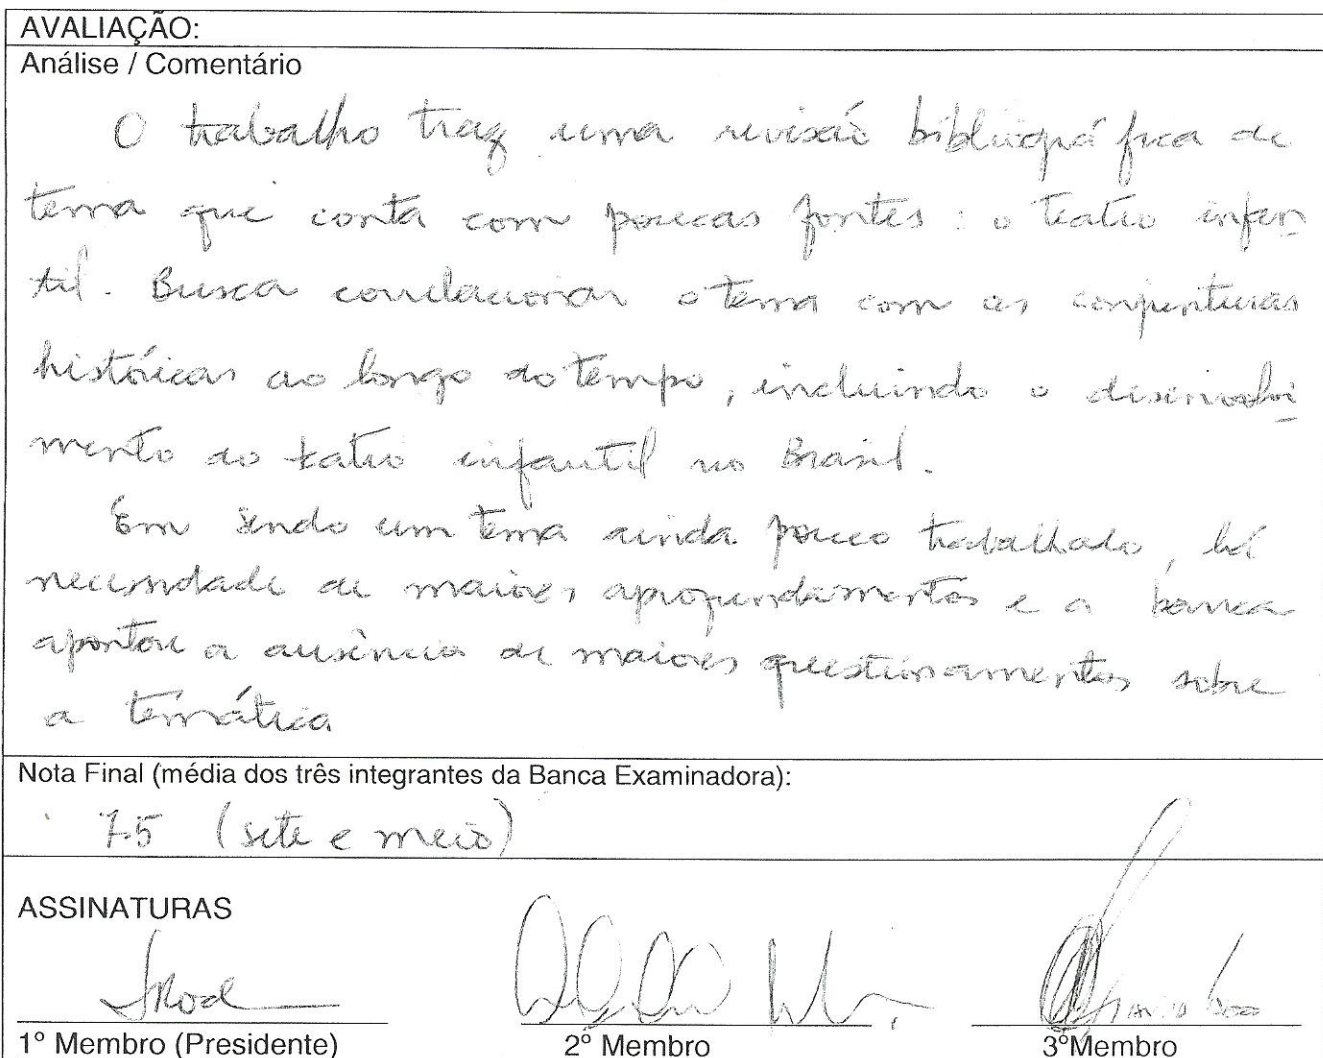 AVALIAÇÃO:
Análise / Comentário
O trabalho traz uma revisão bibliográfica de
tema que conta com poucas fontes: o teatro infan
til. Busca correlacionar o tema com as conjunturas
históricas ao longo do tempo, incluindo o desenvolvi
mento do teatro infantil no Brasil.
Em sendo um tema ainda pouco trabalhado, há
necessidade de maiores aprofundamentos e a banca
apontou a ausência de maiores questionamentos sobre
a temática
Nota Final (média dos três integrantes da Banca Examinadora):
7.5 (sete e meio)
ASSINATURAS
1º Membro (Presidente)
2º Membro
3ºMembro